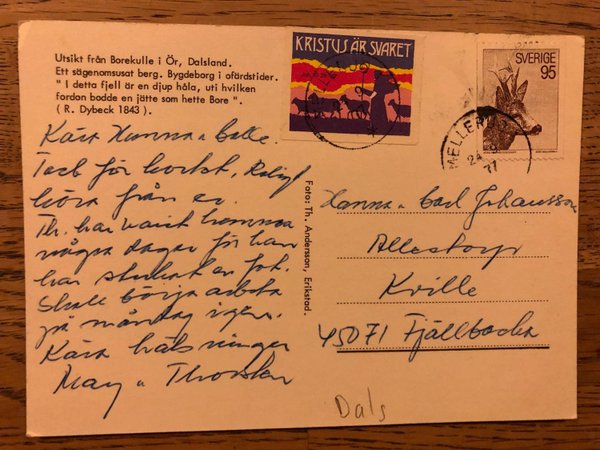 Utsikt från Borekulle i Ör, Dalsland.
Ett sägenomsusat berg. Bygdeborg i ofärdstider.
" I detta fjell är en djup håla, uti hvilken
fordon bodde en jätte som hette Bore ".
( R. Dybeck 1843 ).
Kära Hanna o Calle.
Tack för kortet, Roligt
höra från er.
Th. har varit hemma
några dagar för han
har stukat en fot.
Skall börja arbeta
på måndag igen.
Kära hälsningar
May o Thorsten
Foto: Th. Andersson, Erikstad.
KRISTUS ÄR SVARET
SVERIGE
95
MELLERUD
Hanna o Carl Johansson
Allestorp
Kville
45071 Fjällbacka
Dals